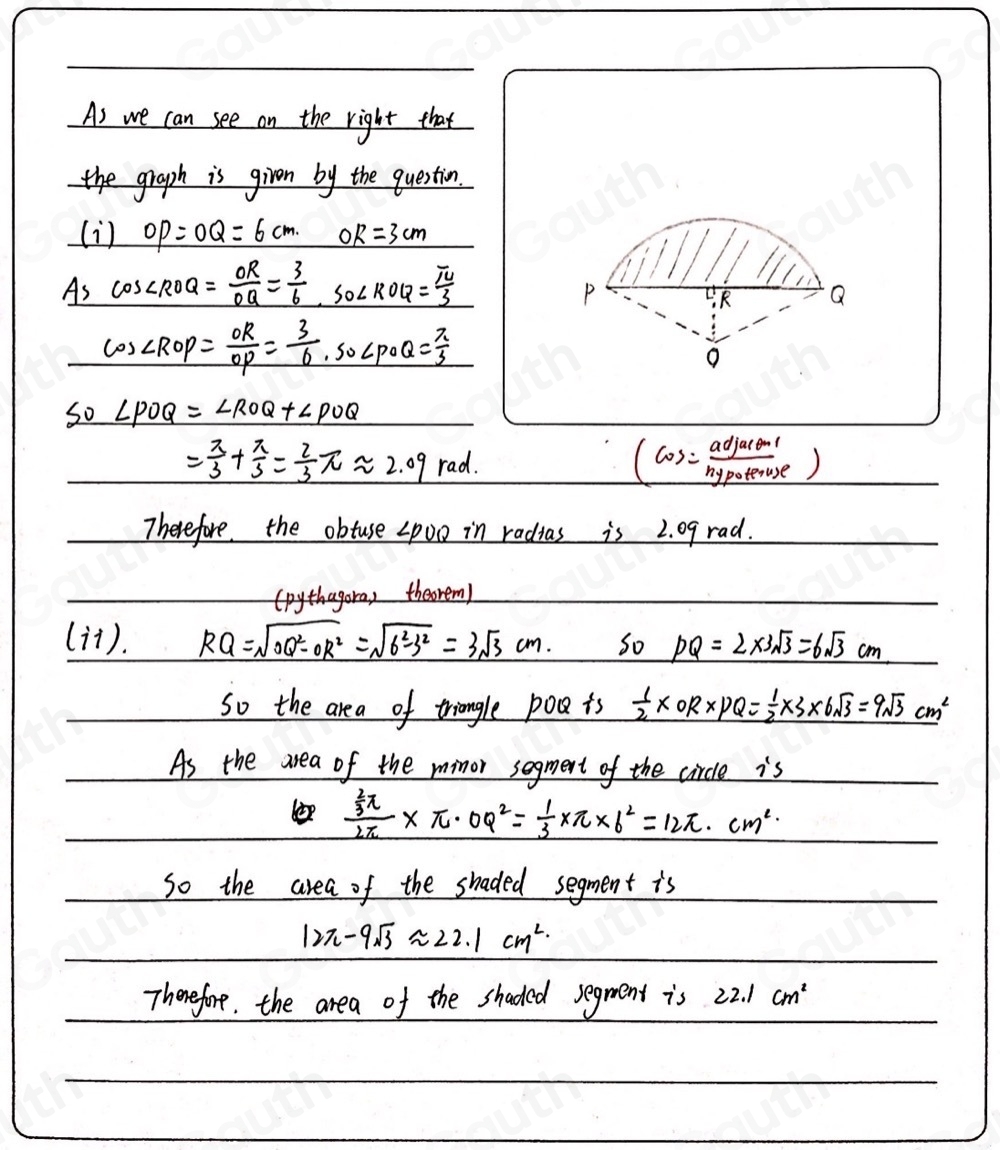 As we can see on the right that
the graph is given by the question.
(i) OP = OQ = 6 cm. OR = 3 cm
As cos∠ROQ = OR/OQ = 3/6. so∠ROQ = π/3
cos∠ROP = OR/OP = 3/6. so∠POQ = π/3
so ∠POQ = ∠ROQ + ∠POQ
= π/3 + π/3 = 2/3 π ≈ 2.09 rad.
Therefore. the obtuse ∠POQ in radias is 2.09 rad.
P R Q
O
(cos = adjacent/hypotenuse)
(pythagoras theorem)
(ii). RQ = √OQ²-OR² = √6²-3² = 3√3 cm. so PQ = 2×3√3 = 6√3 cm
So the area of triangle POQ is 1/2 × OR × PQ = 1/2 × 3 × 6√3 = 9√3 cm²
As the area of the minor segment of the circle is
2/3π/2π × π · OQ² = 1/3 × π × 6² = 12π. cm².
So the area of the shaded segment is
12π - 9√3 ≈ 22.1 cm².
Therefore. the area of the shaded segment is 22.1 cm²
Gauth